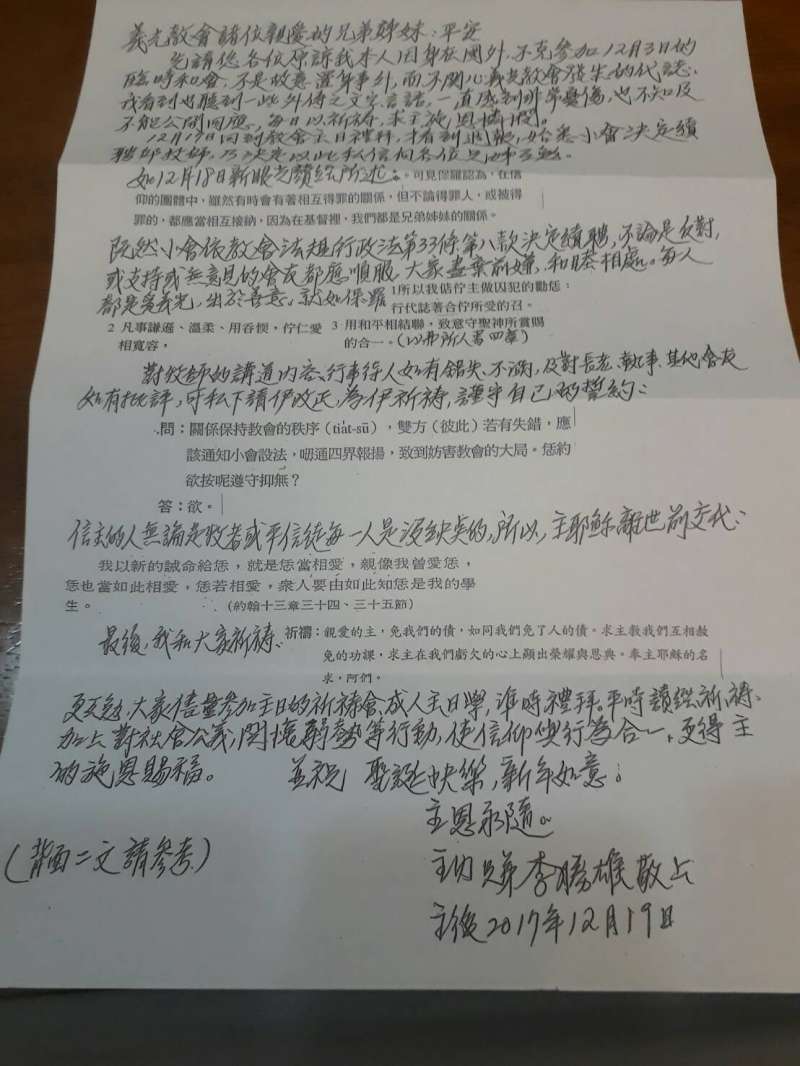 義光教會諸位親愛的兄弟姊妹：平安
先請您各位原諒我本人因身在國外，不克參加12月3日的
臨時和會，不是故意置身事外，而不關心義光教會發生的代誌。
我看到也聽到一些外傳之文字言語，一直感到非常憂傷，也不知及
不能公開回應，每日以祈禱，求主施恩憐憫。
12月17日回到教會主日禮拜，才看到週報，始悉小會決定續
聘邱牧師，乃決定以此私信向各位兄姊互勉。
如12月18日新眼光讀經所述：。可見保羅認為，在信
仰的團體中，雖然有時會有著相互得罪的關係，但不論得罪人，或被得
罪的，都應當相互接納，因為在基督裡，我們都是兄弟姊妹的關係。
既然小會依教會法規行政法第33條第八款決定續聘，不論是反對，
或支持或無意見的會友都應順服，大家盡棄前嫌，和睦相處。每人
都是愛義光，出於善意，就如保羅 1所以我佮佇主做囚犯的勸恁：
行代誌著合佇所受的召。
2 凡事謙遜、溫柔、用吞忍，佇仁愛 3 用和平相結聯，致意守聖神所賞賜
相寬容， 的合一。(以弗所人書四章)
對牧師的講道內容、行事待人如有錯失、不滿，及對長老、執事、其他會友
如有批評，可私下請伊改正，為伊祈禱，謹守自己的誓約：
問：關係保持教會的秩序（tia̍t-sū），雙方（彼此）若有失錯，應
該通知小會設法，嘸通四界報揚，致到妨害教會的大局。恁約
欲按呢遵守抑無？
答：欲。
信主的人無論是牧者或平信徒每一人是沒缺失的，所以，主耶穌離世前交代：
我以新的誡命給恁，就是恁當相愛，親像我曾愛恁，
恁也當如此相愛，恁若相愛，衆人要由如此知恁是我的學
生。 （約翰十三章三十四、三十五節）
最後，我和大家祈禱： 祈禱：親愛的主，免我們的債，如同我們免了人的債。求主教我們互相赦
免的功課，求主在我們虧欠的心上顯出榮耀與恩典。奉主耶穌的名
求，阿們。
更互勉，大家儘量參加主日的祈禱會、成人主日學，準時禮拜。平時讀經、祈禱、
加上對社會公義，關懷弱勢等行動，使信仰與行為合一，更得主
的施恩賜福。 並祝 聖誕快樂，新年如意；
主恩永隨。
（背面二文請參考）
主內 兄弟李勝雄敬上
主後2017年12月19日